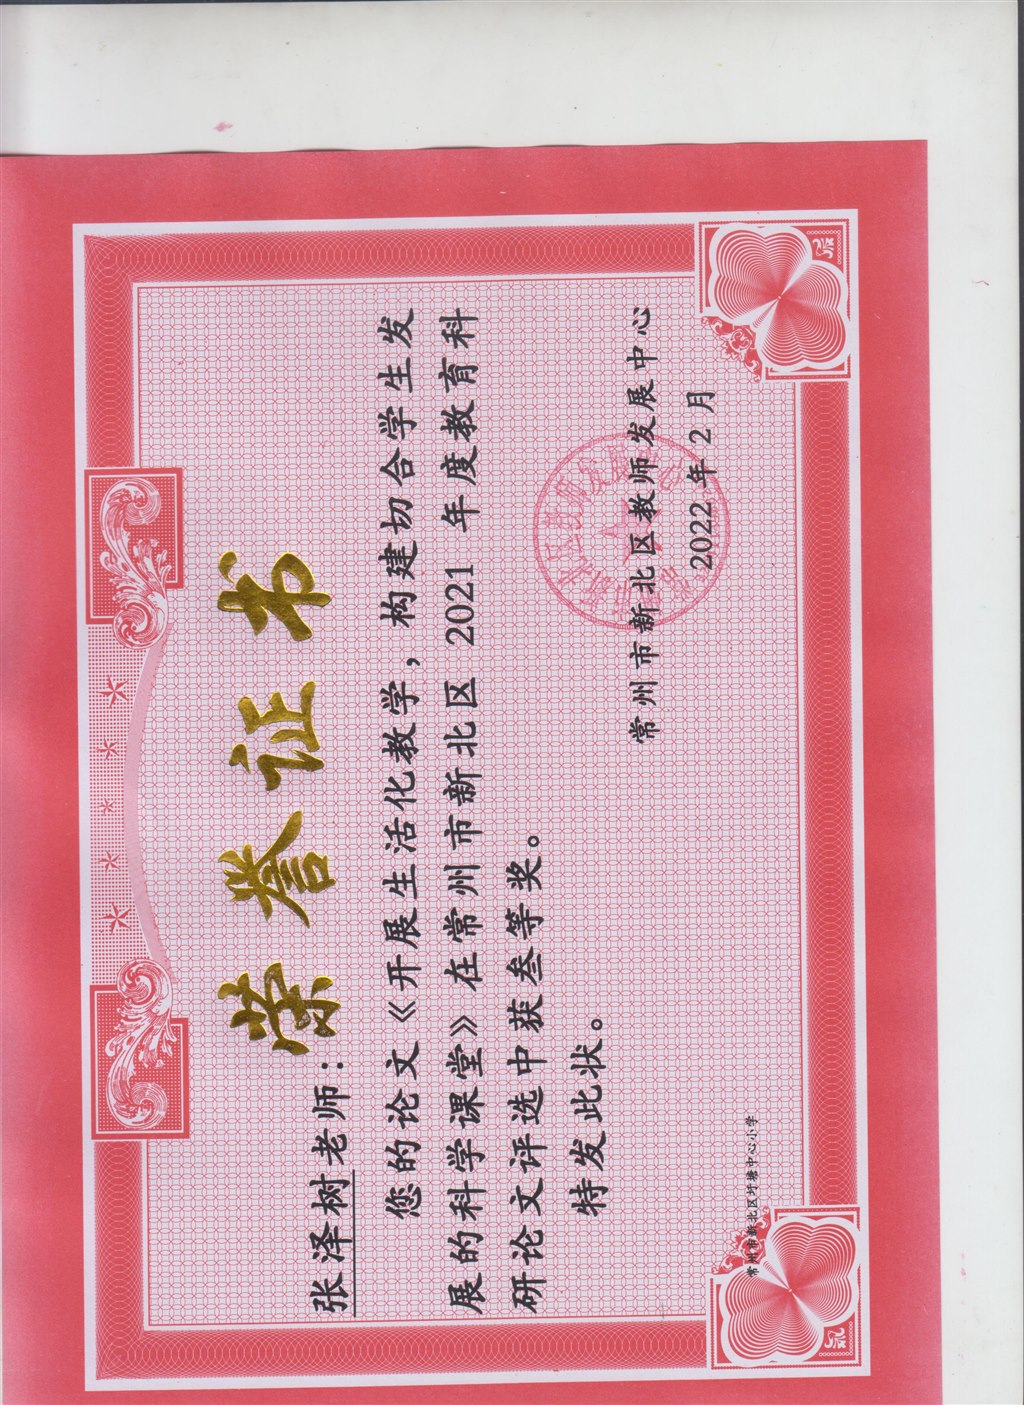 荣誉证书
张泽树老师：
您的论文《开展生活化教学，构建切合学生发
展的科学课堂》在常州市新北区 2021 年度教育科
研论文评选中获叁等奖。
特发此状。
常州市新北区教师发展中心
2022 年 2 月
常州市新北区圩塘中心小学